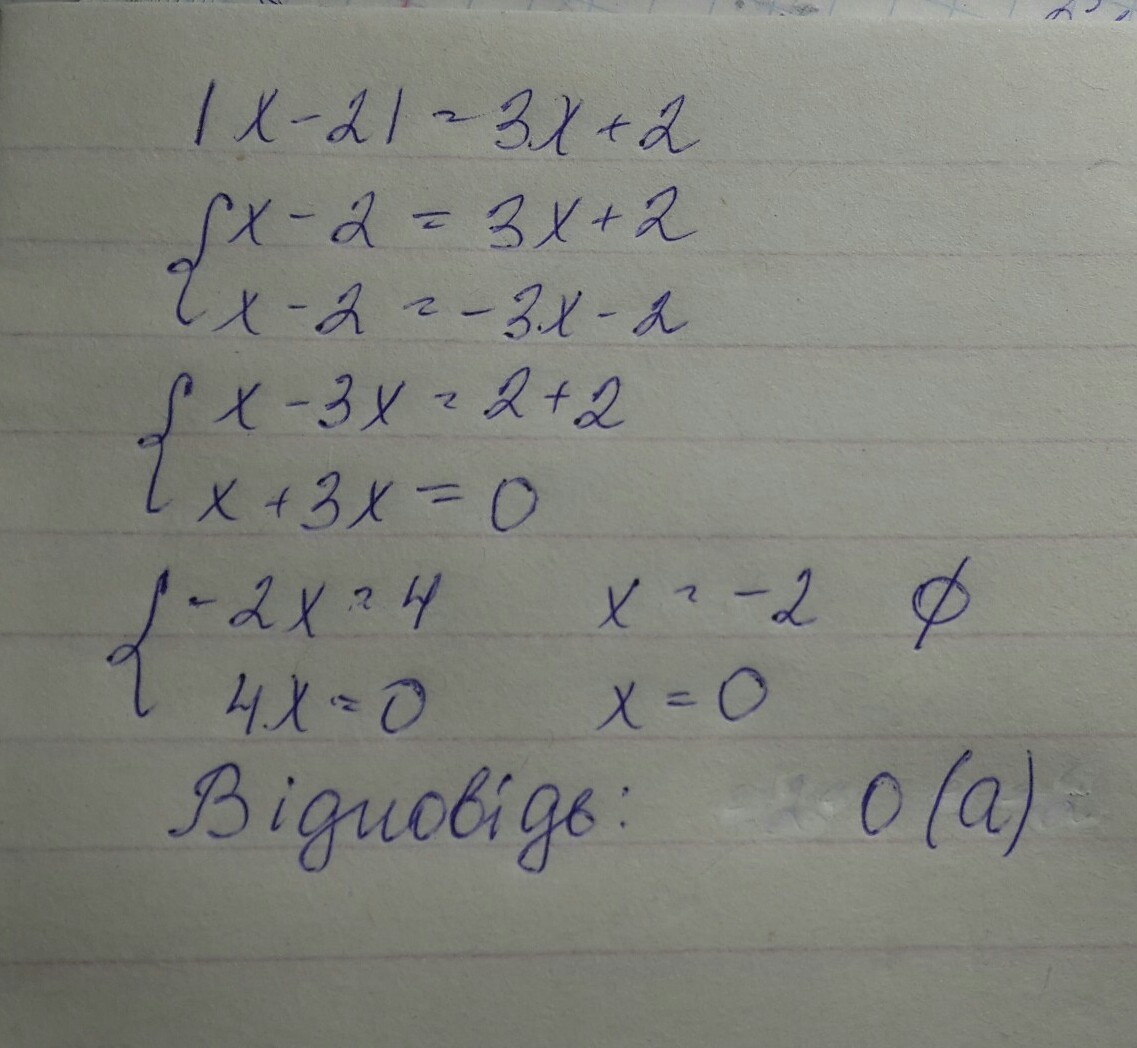 |x-2| = 3x+2
{x-2 = 3x+2
x-2 = -3x-2
{x-3x = 2+2
x+3x = 0
{-2x = 4 x = -2 ∅
4x = 0 x = 0
Відповідь: 0 (а)